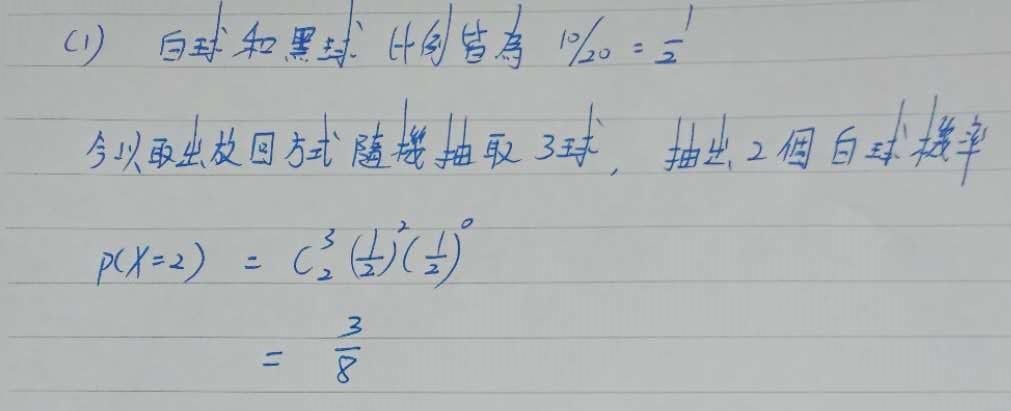 (1) 白球和黑球比例皆為 10/20 = 1/2
今以取出放回方式隨機抽取3球, 抽出2個白球機率
P(X=2) = C³₂ (1/2)² (1/2)⁰
= 3/8